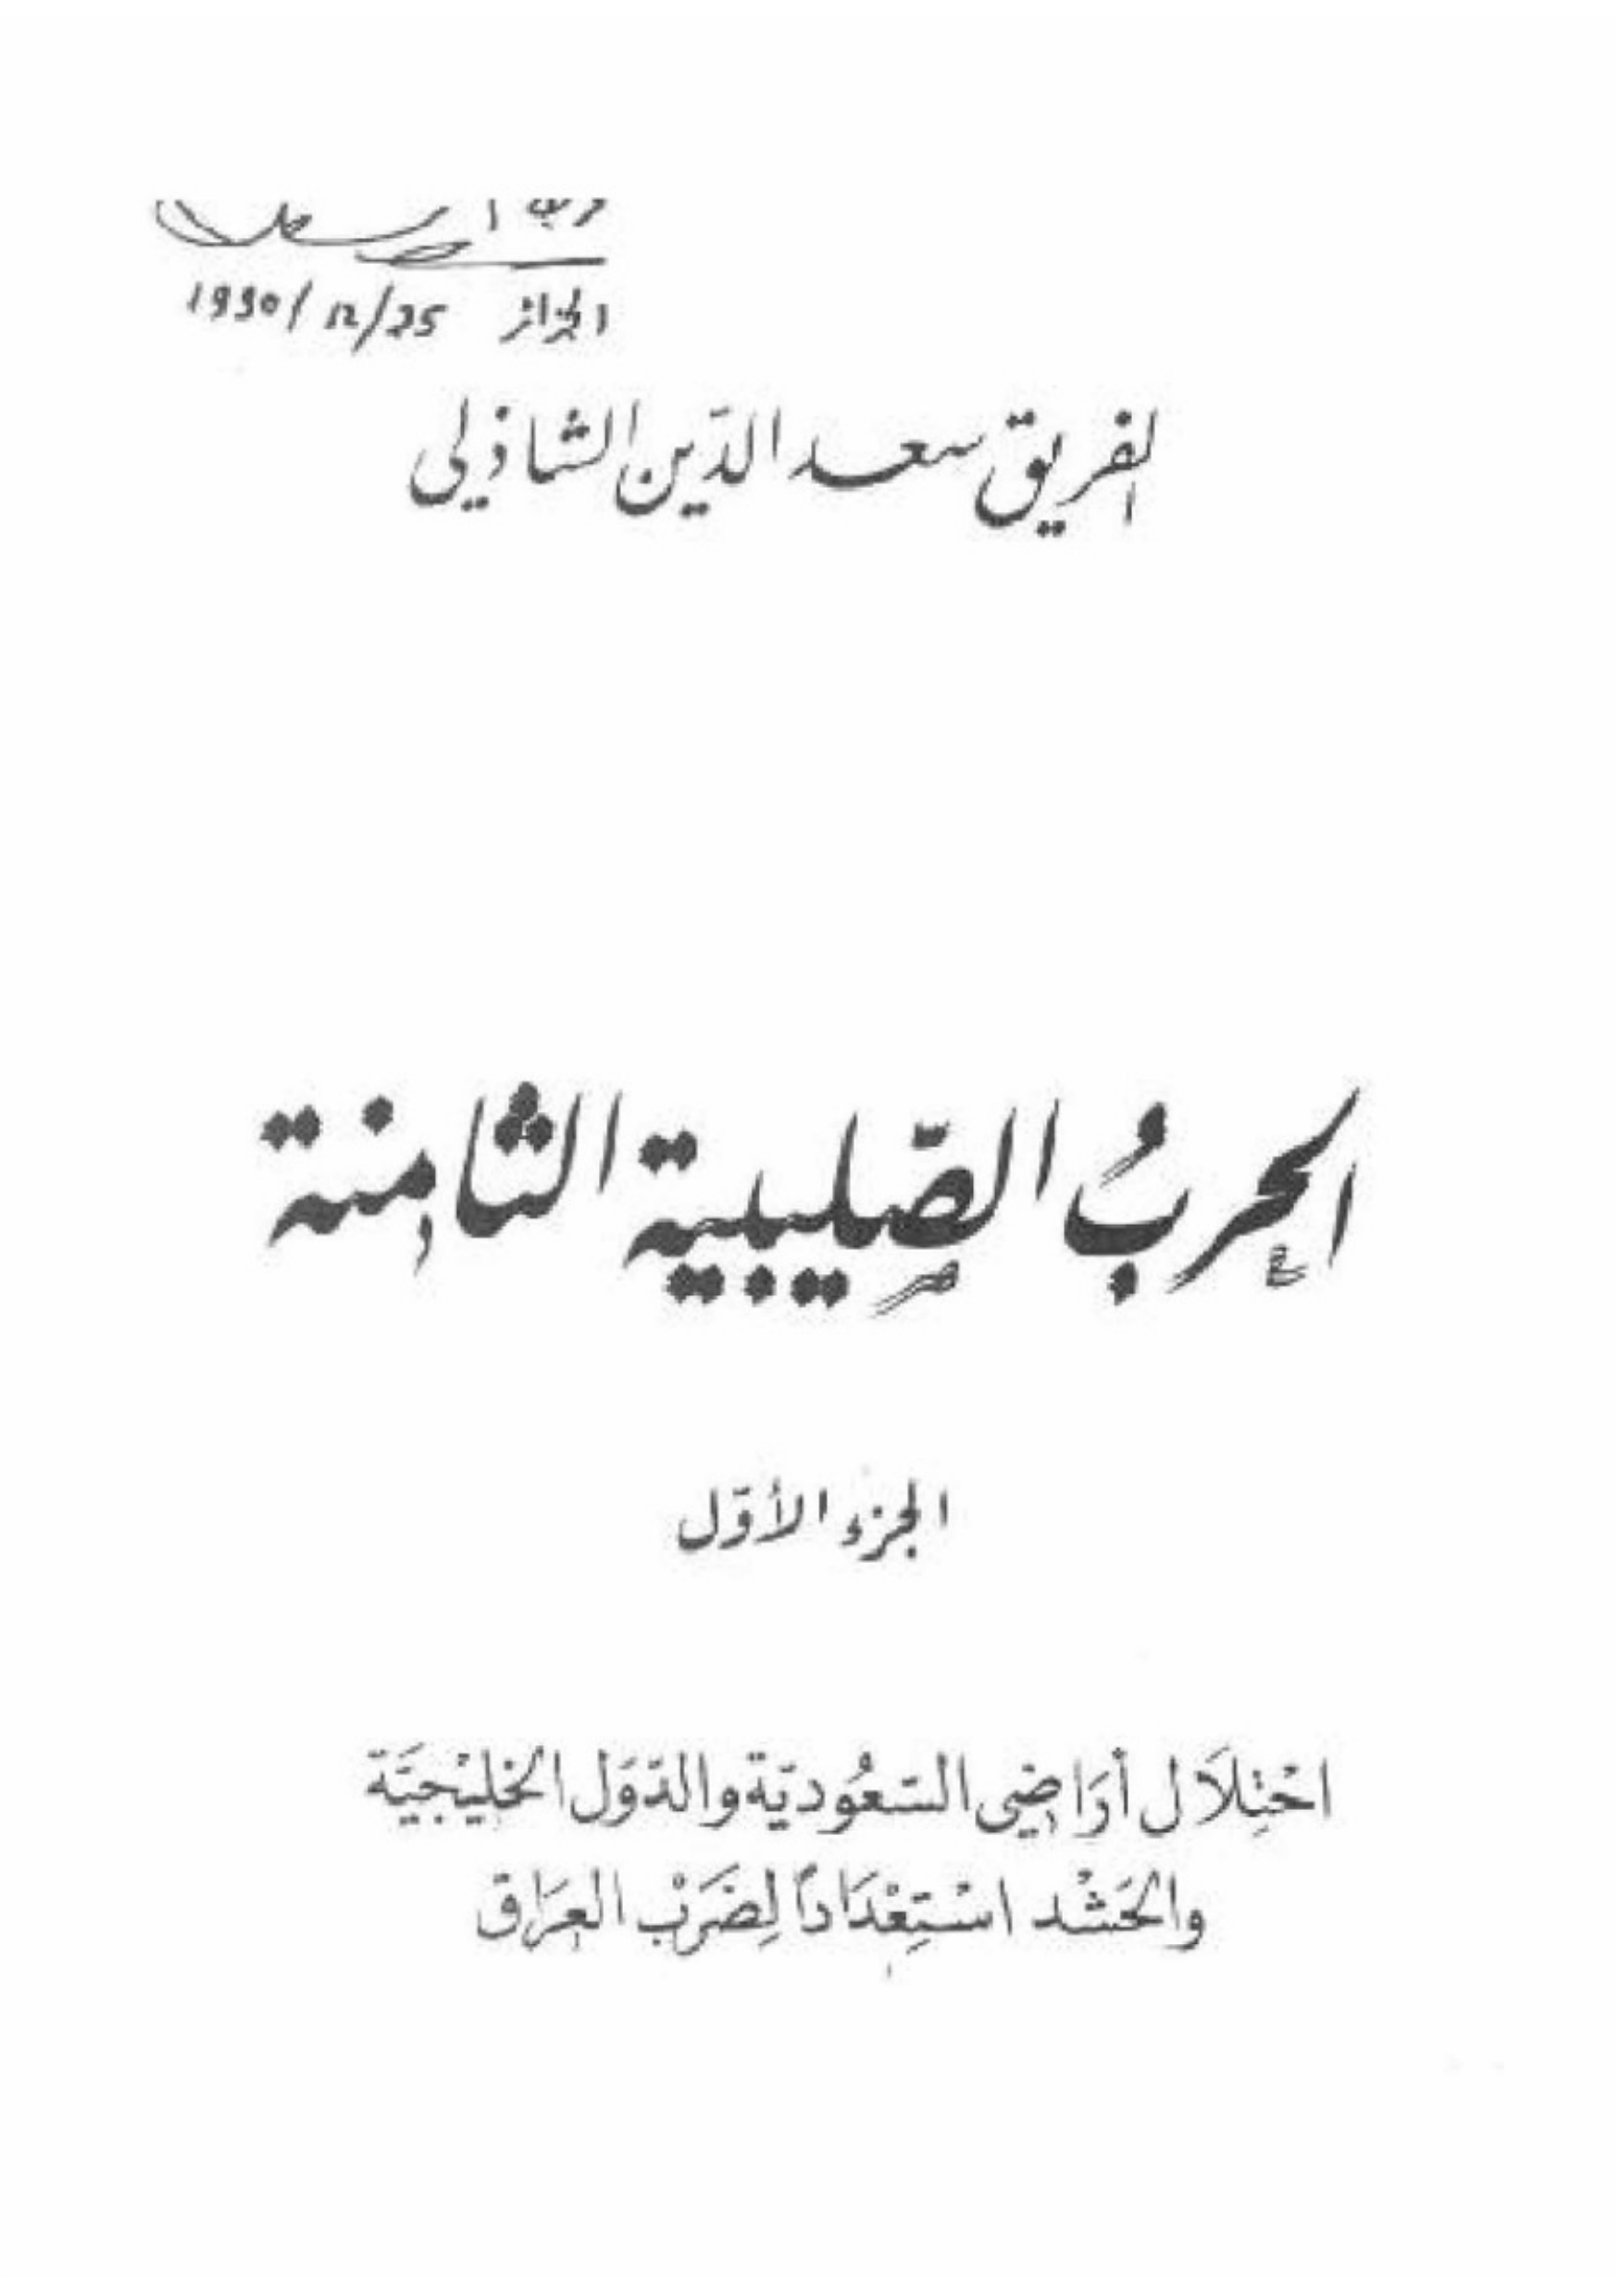 الجزائر 1990/12/25
الفريق سعد الدّين الشاذلي
الحربُ الصِّليبية الثامنة
الجزء الأوّل
احْتِلاَل أرَاضِي السّعُوديّة والدّوَل الخَليْجيَّة
والحَشْد اسْتِعْدَاداً لِضَرْب العِرَاق